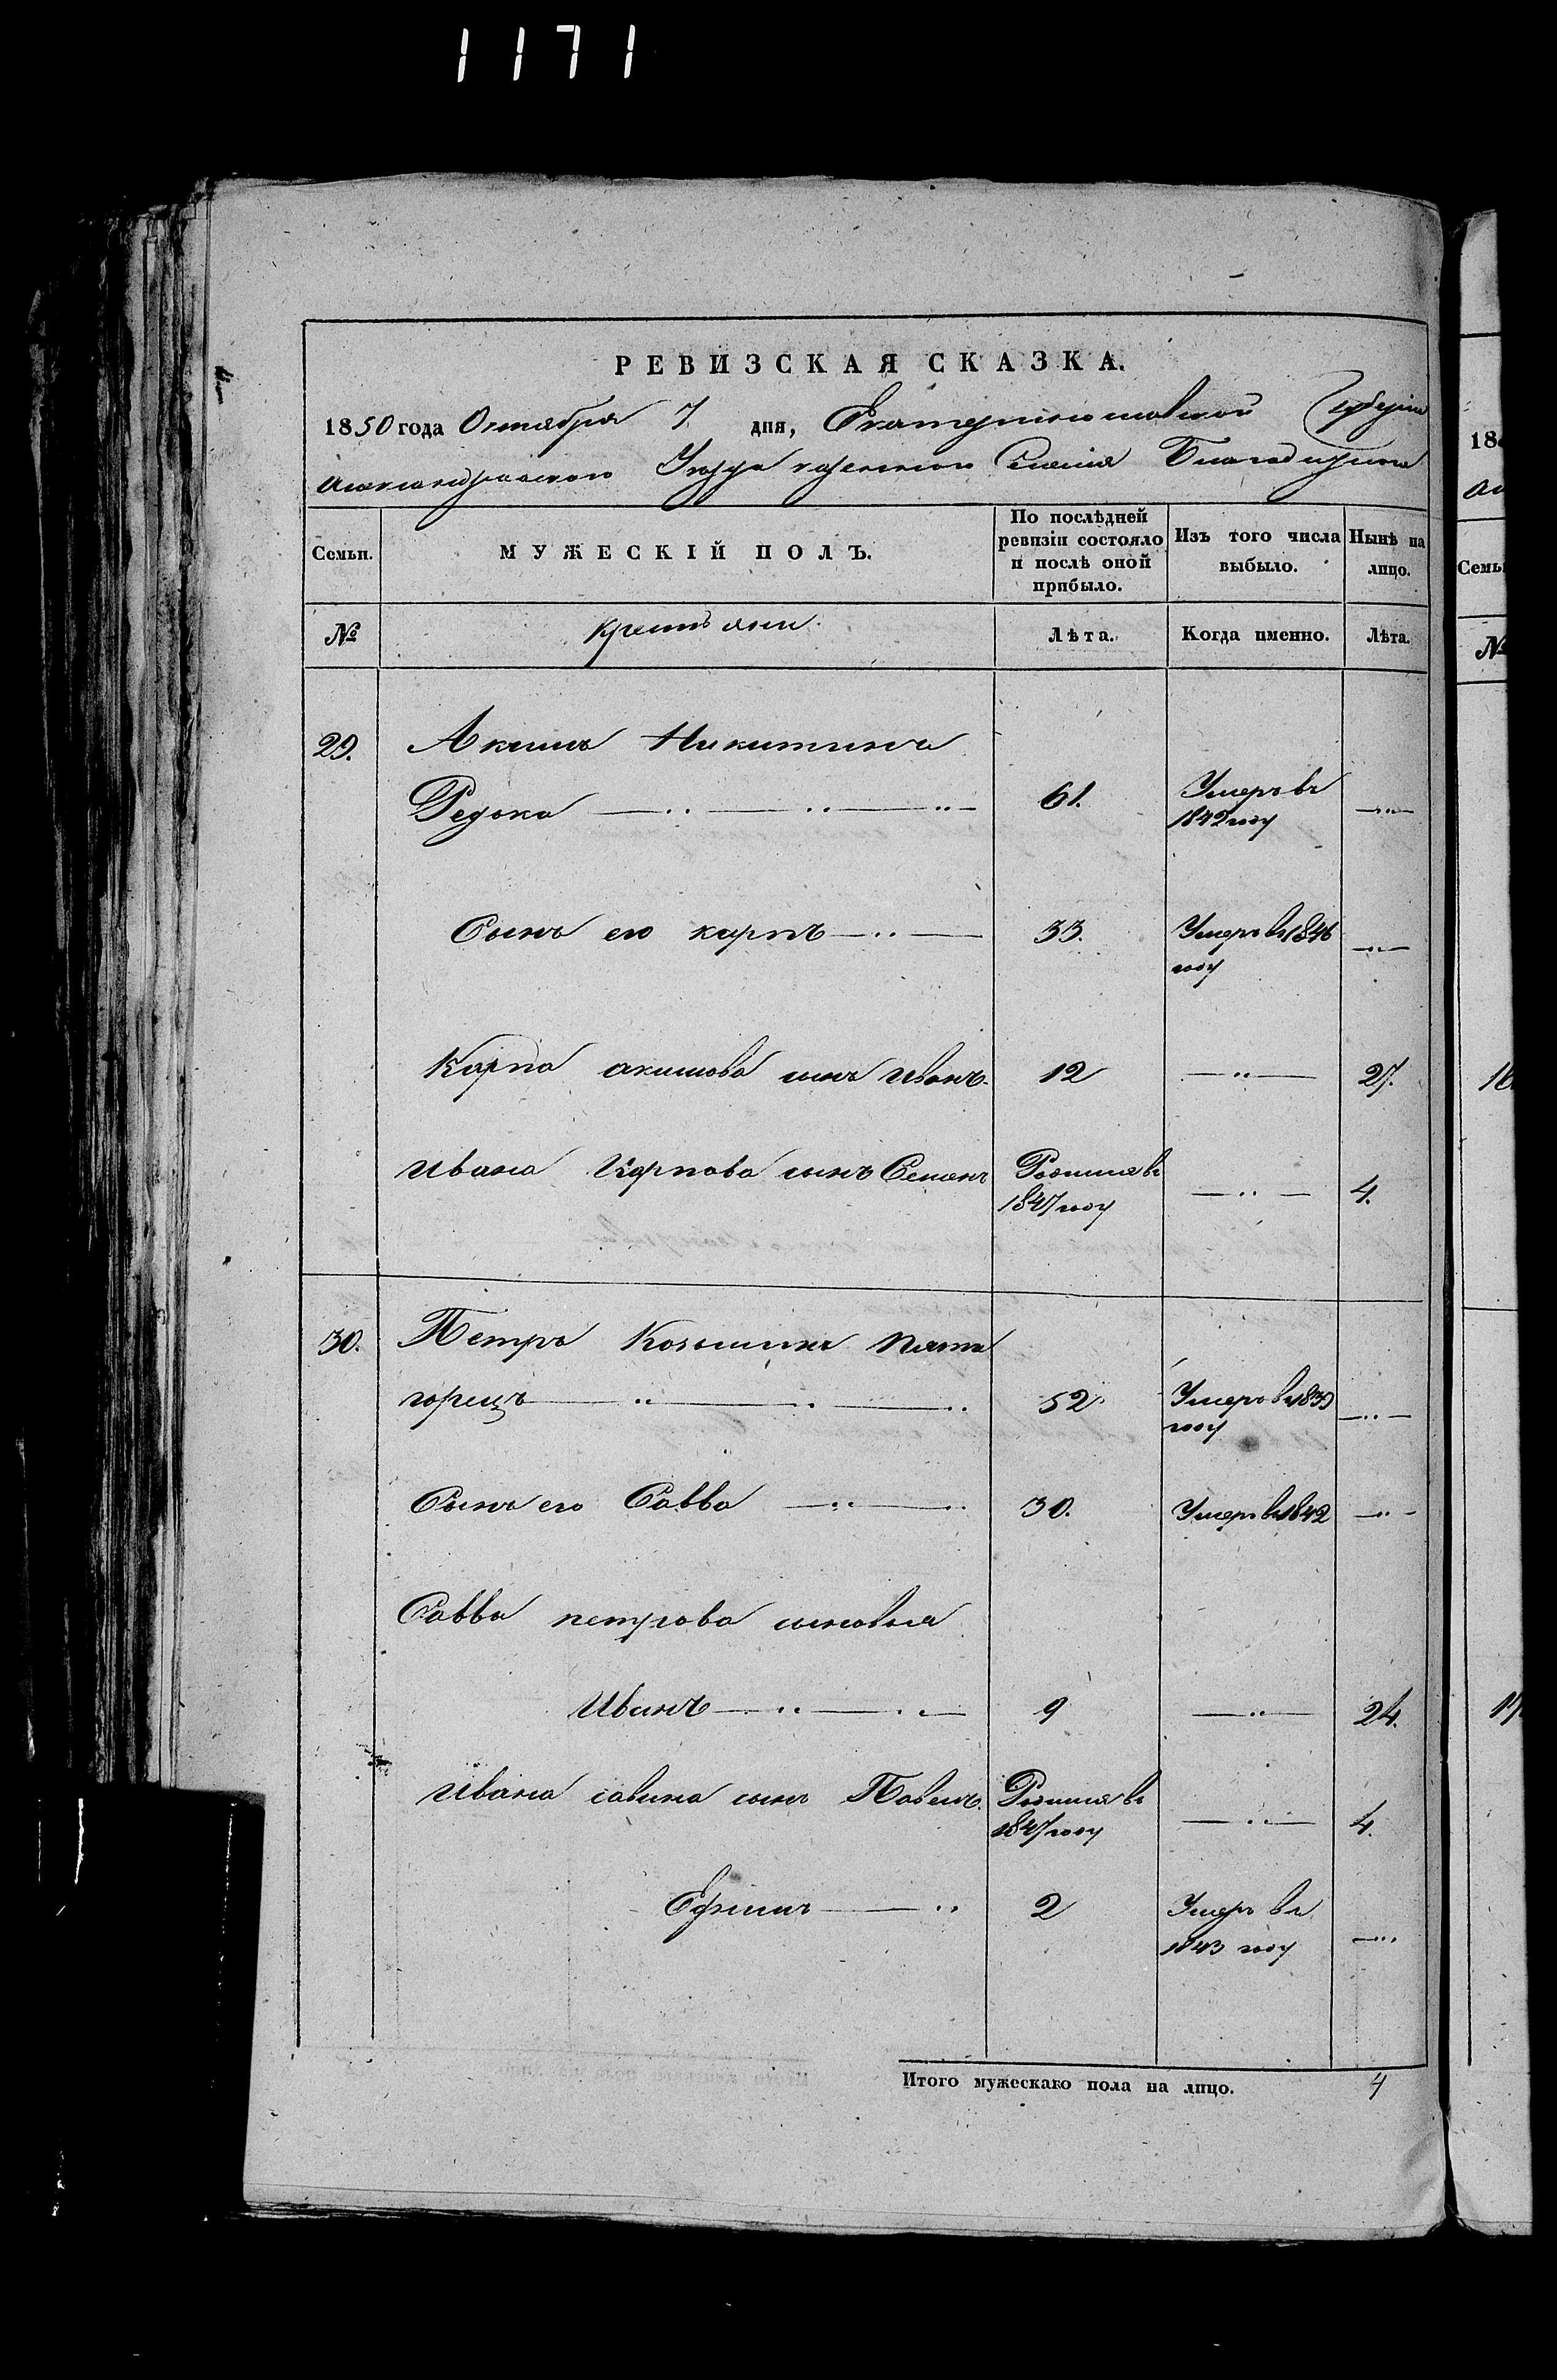 1171
РЕВИЗСКАЯ СКАЗКА.
1850 года Октября 7 дня, Екатеринославской Губерніи
Александровскаго Уезда казеннаго Селенія Благодарнаго
Семьи. МУЖЕСКІЙ ПОЛЪ. По послѣдней ревизіи состояло и послѣ оной прибыло. Изъ того числа выбыло. Нынѣ на лицо.
№ Крестьяни. Лѣта. Когда именно. Лѣта.
29. Акимъ Никитинъ
Редька 61. Умеръ въ 1842 году
Сынъ его карпъ 33. Умеръ въ 1846 году
Карпа акимова сынъ Иванъ. 12 27.
Ивана Карпова сынъ Семенъ Родился въ 1847 году 4.
30. Петръ Козьминъ Пяти
горецъ 52 Умеръ в 1839 году
Сынъ его Савва 30. Умеръ в 1842
Саввы петрова сыновья
Иванъ 9 24.
Ивана савина сынъ Павелъ. Родился въ 1847 году 4.
Ефимъ 2 Умеръ въ 1843 году
Итого мужескаго пола на лицо. 4
18
Семьи
№